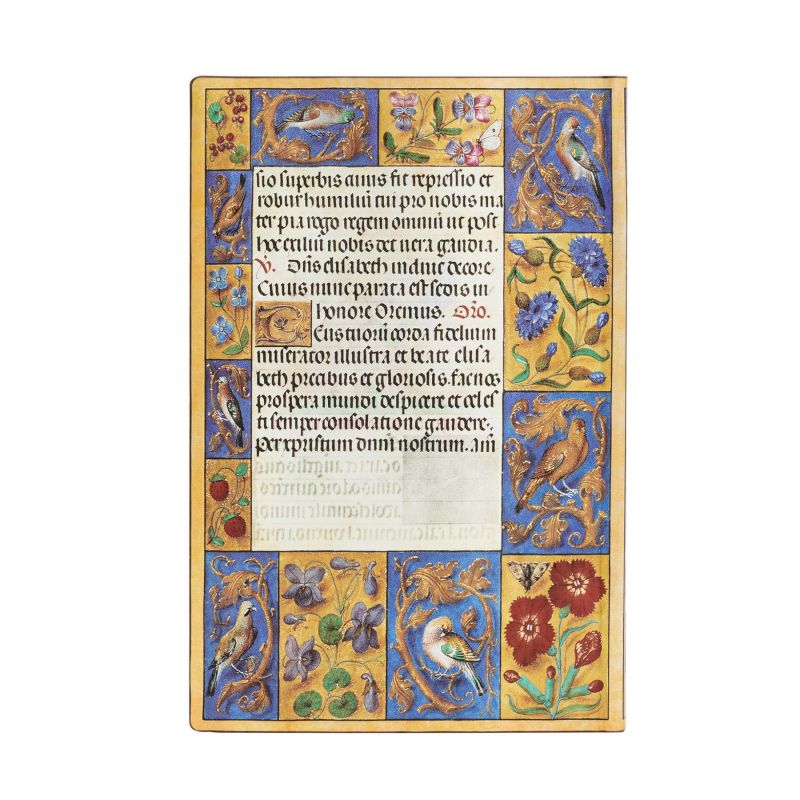 sio superbis cuius fit repressio et
robur humiliū tui pro nobis ma
ter pia rogo regem omniū ut post
hoc exiliū nobis det vera gaudia.
V. Dn̄s elisabeth induit decore.
Cuius nunc parata est sedis in
honore Oremus. Oro.
Eus tuorū corda fidelium
miserator illustra et beate elisa
beth precibus et gloriosis. fac nos
prospera mundi despicere et celes
ti semper consolatione gaudere.
Per xpristum dnm̄ nostrum. am̄